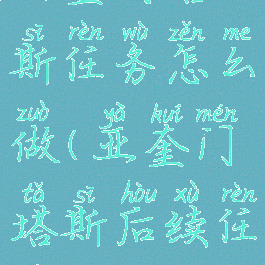 sī rèn wù zěn me
斯任务怎么
zuò yà kuí mén
做(亚奎门
tǎ sī hòu xù rèn
塔斯后续任